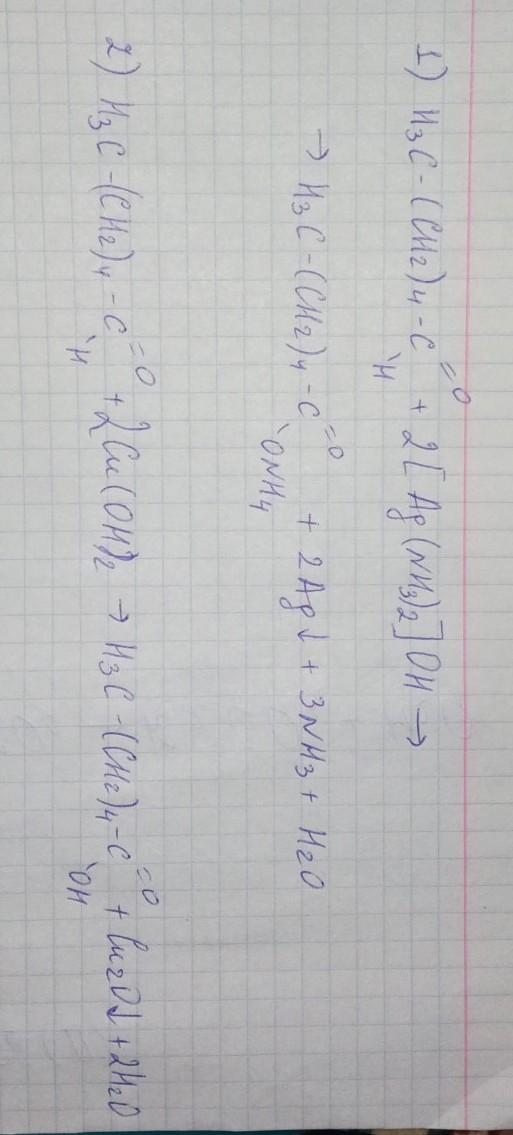 1) H3C-(CH2)4-C=O 'H + 2[Ag(NH3)2]OH →
→ H3C-(CH2)4-C=O 'ONH4 + 2Ag↓ + 3NH3 + H2O
2) H3C-(CH2)4-C=O 'H + 2Cu(OH)2 → H3C-(CH2)4-C=O 'OH + Cu2O↓ + 2H2O